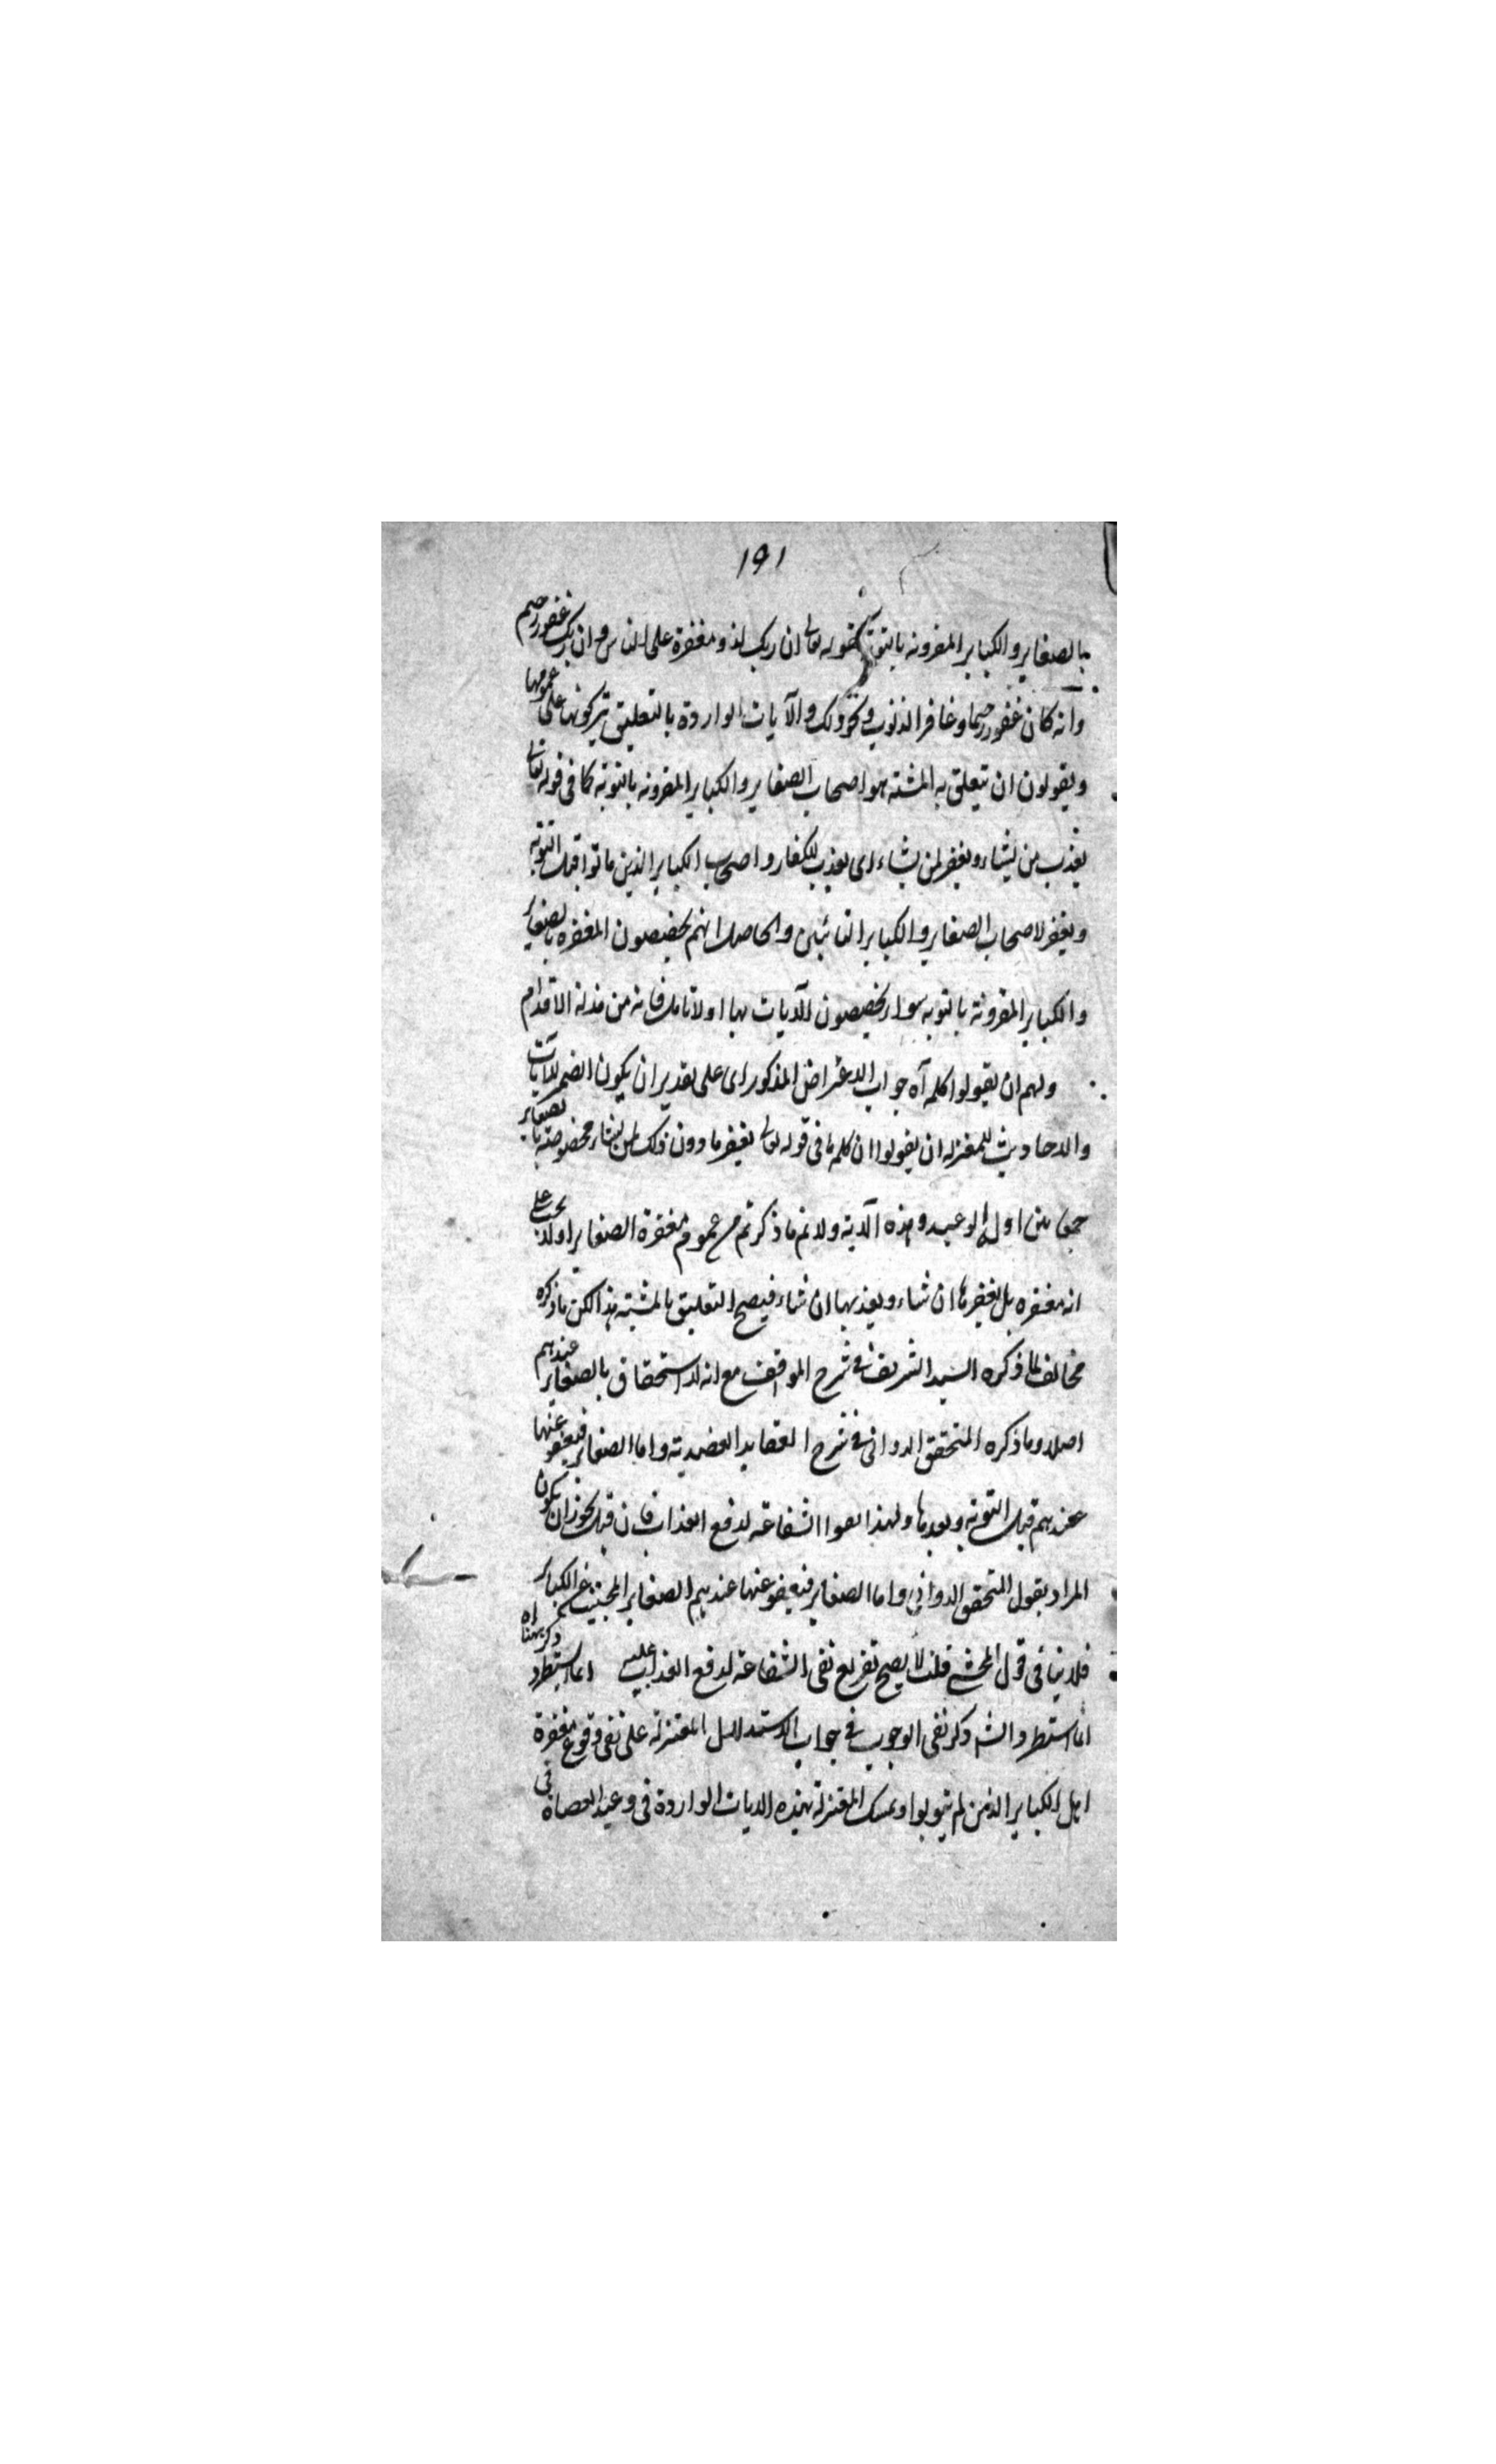 ١٩١
بالصغاير والكباير المقرونه بالتوبة كقوله تعالى ان ربك لذو مغفرة على الناس وان ربك غفور رحيم
وانه كان غفورا رحيما وغافر الذنوب ونحو ذلك والآيات الواردة بالتعليق يتركونها على عمومها
ويقولون ان تتعلق به المشته هو اصحاب الصغاير والكباير المقرونه بالتوبة كما في قوله تعالى
يعذب من يشاء ويغفر لمن يشاء اى يعذب الكفار واصحاب الكباير الذين ماتوا قبل التوبة
ويغفر لاصحاب الصغاير والكباير التائبين والحاصل انهم يخصصون المغفره بالصغاير
والكباير المقرونة بالتوبه سواء يخصصون الآيات بها اولا تامل فانه من مذلة الاقدام
ولهم ان يقولوا كلمه آه جواب الاعتراض المذكور اى على تقدير ان يكون الضمير للآيات
والاحاديث للمعتزله ان يقولوا ان كلمة ما في قوله تعالى يغفر ما دون ذلك لمن يشاء مخصوصة بالصغاير
جمعا بين ادلة الوعيد وهذه الآية ولا نم ما ذكرتم من عموم مغفرة الصغاير اولا يجب على
انه مغفره بل يغفرها ان شاء ويعذبها ان شاء فيصح التعليق بالمشية هذا لكن ما ذكره
مخالف لما ذكره السيد الشريف في شرح المواقف مع انه لا استحقاق بالصغاير عندهم
اصلا وما ذكره المحقق الدواني في شرح العقايد العضدية واما الصغاير فيعفو عنها
عندهم قبل التوبة وبعدها ولهذا نفوا الشفاعة لدفع العذاب فان قيل يجوز ان يكون
المراد بقول المحقق الدواني واما الصغاير فيعفو عنها عندهم الصغاير المجتنب عن الكباير
فلا ينافي قول المحشى قلنا لا يصح تفريع نفى الشفاعة لدفع العذاب عليه انما استطرد ذكر ههنا اه
انما استطرد الشه ذكر نفى الوجوب في جواب الاستدلال المعتزلة على نفى وقوع مغفرة
اهل الكباير الذين لم يتوبوا وتمسك المعتزلة بهذه الايات الواردة في وعيد العصاة في